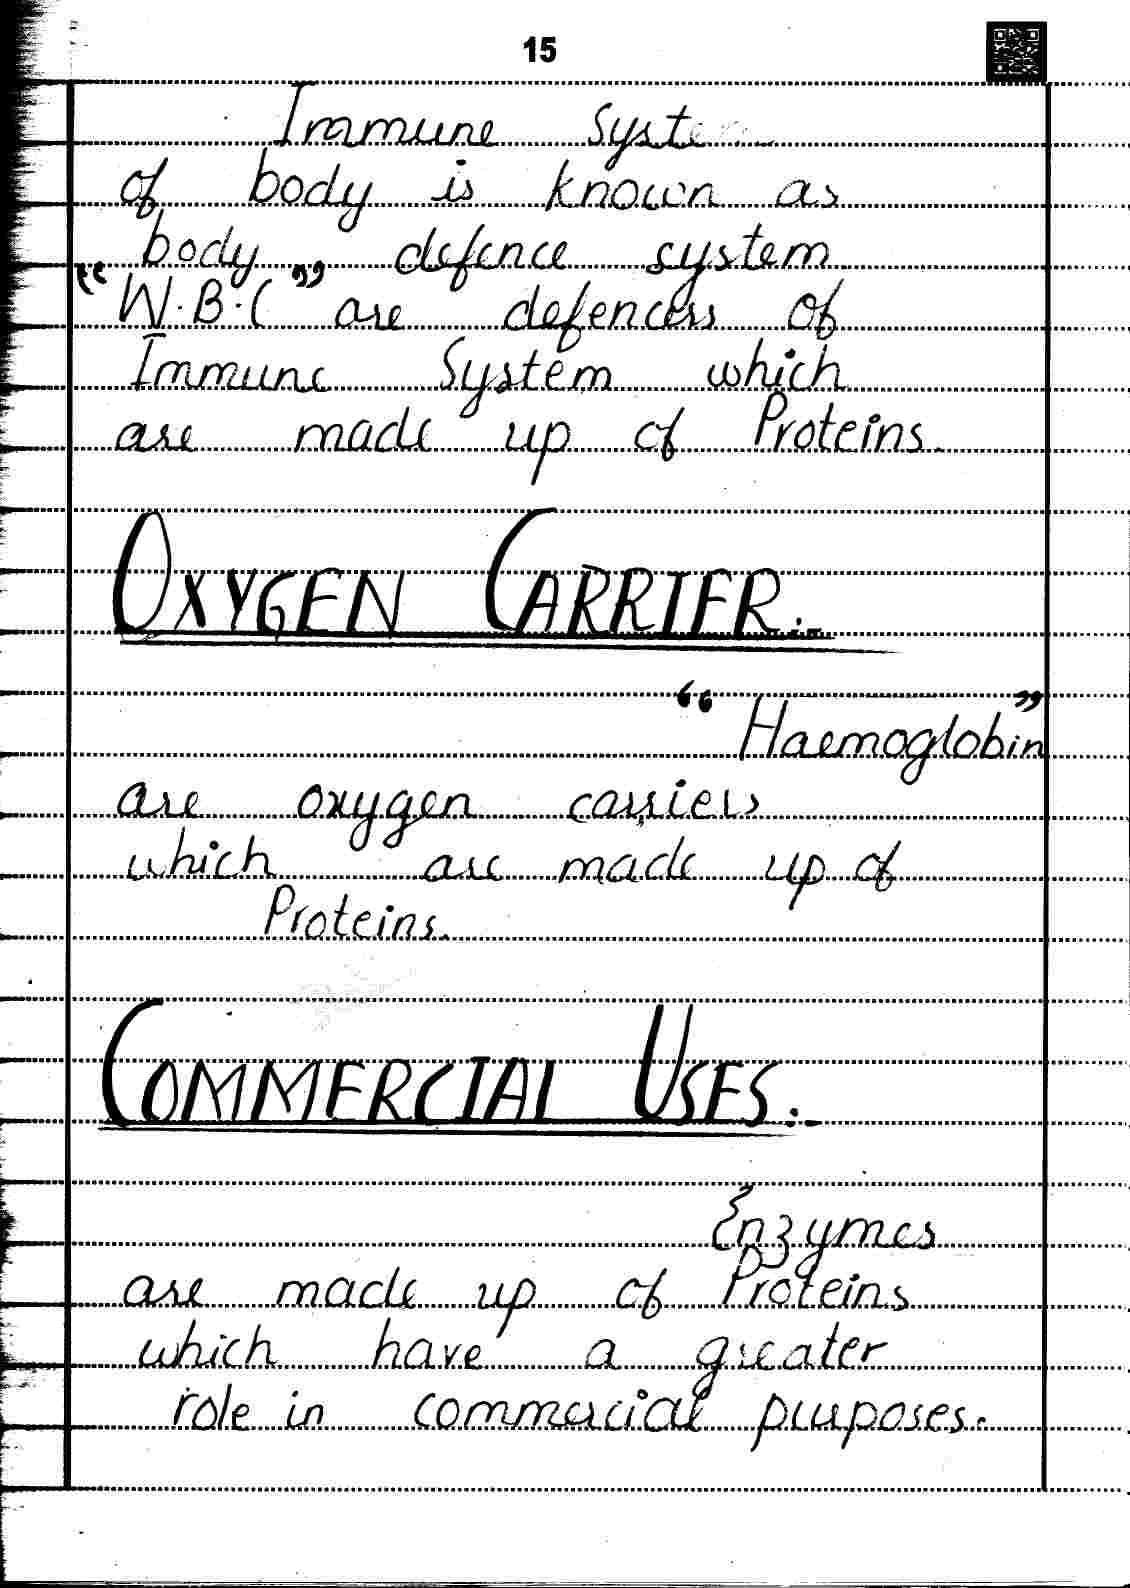 15
Immune System
of body is known as
body defence system
"W.B.C" are defencers of
Immune System which
are made up of Proteins.
OXYGEN CARRIER:-
"Haemoglobin"
are oxygen carriers
which are made up of
Proteins.
COMMERCIAL USES:-
Enzymes
are made up of Proteins
which have a greater
role in commercial purposes.